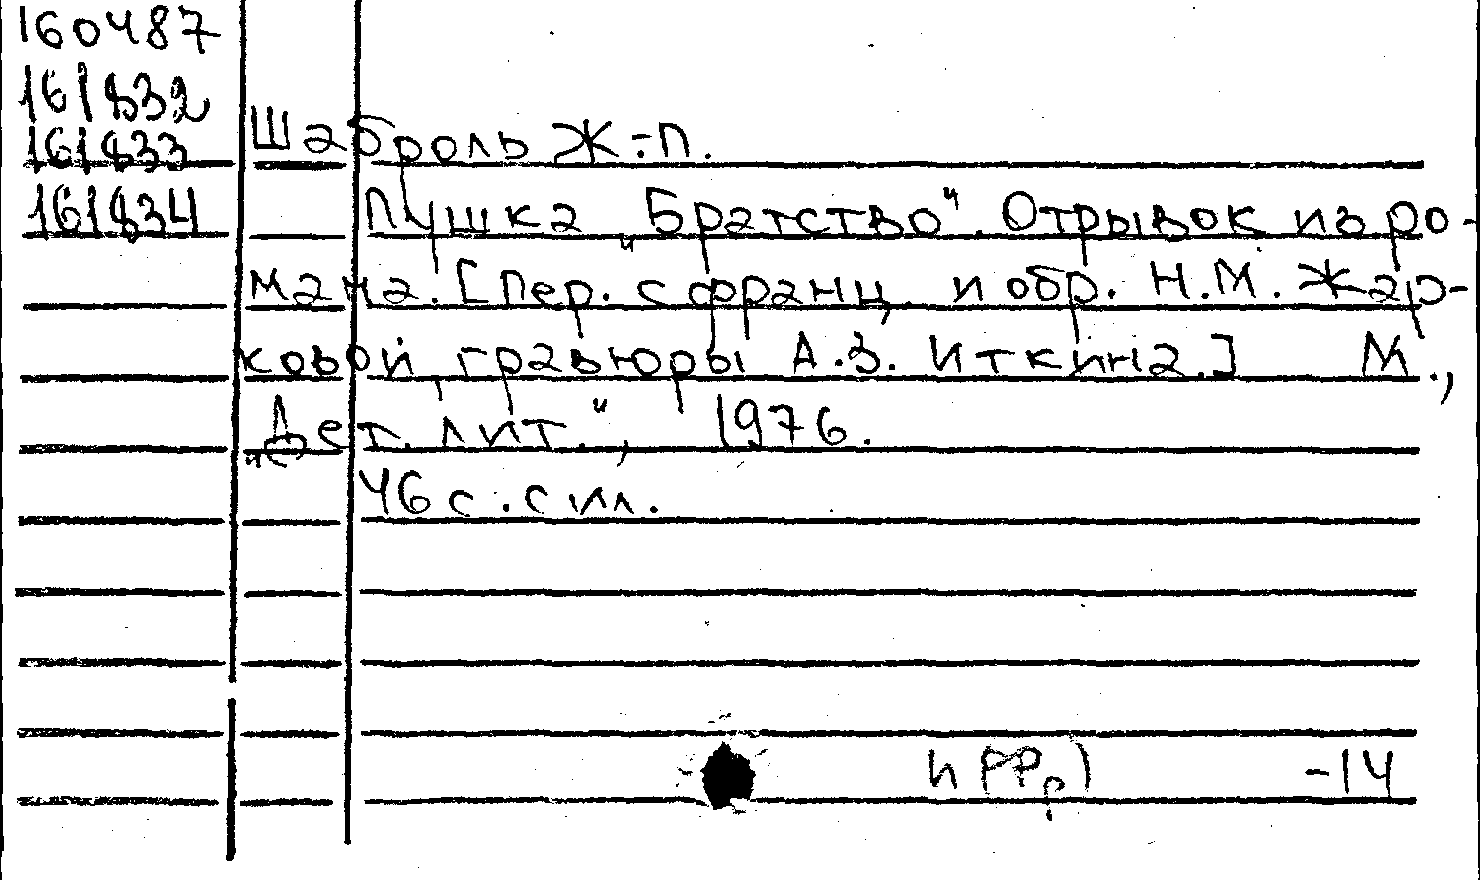 160487
161832
161833
161834
Шаброль Ж.-П.
Пушка „Братство". Отрывок из ро-
мана. [Пер. с франц. и обр. Н.М. Жар-
ковой, гравюры А.З. Иткина.] М.,
„Дет. лит.", 1976.
46 с. с илл.
И(Фр) -14